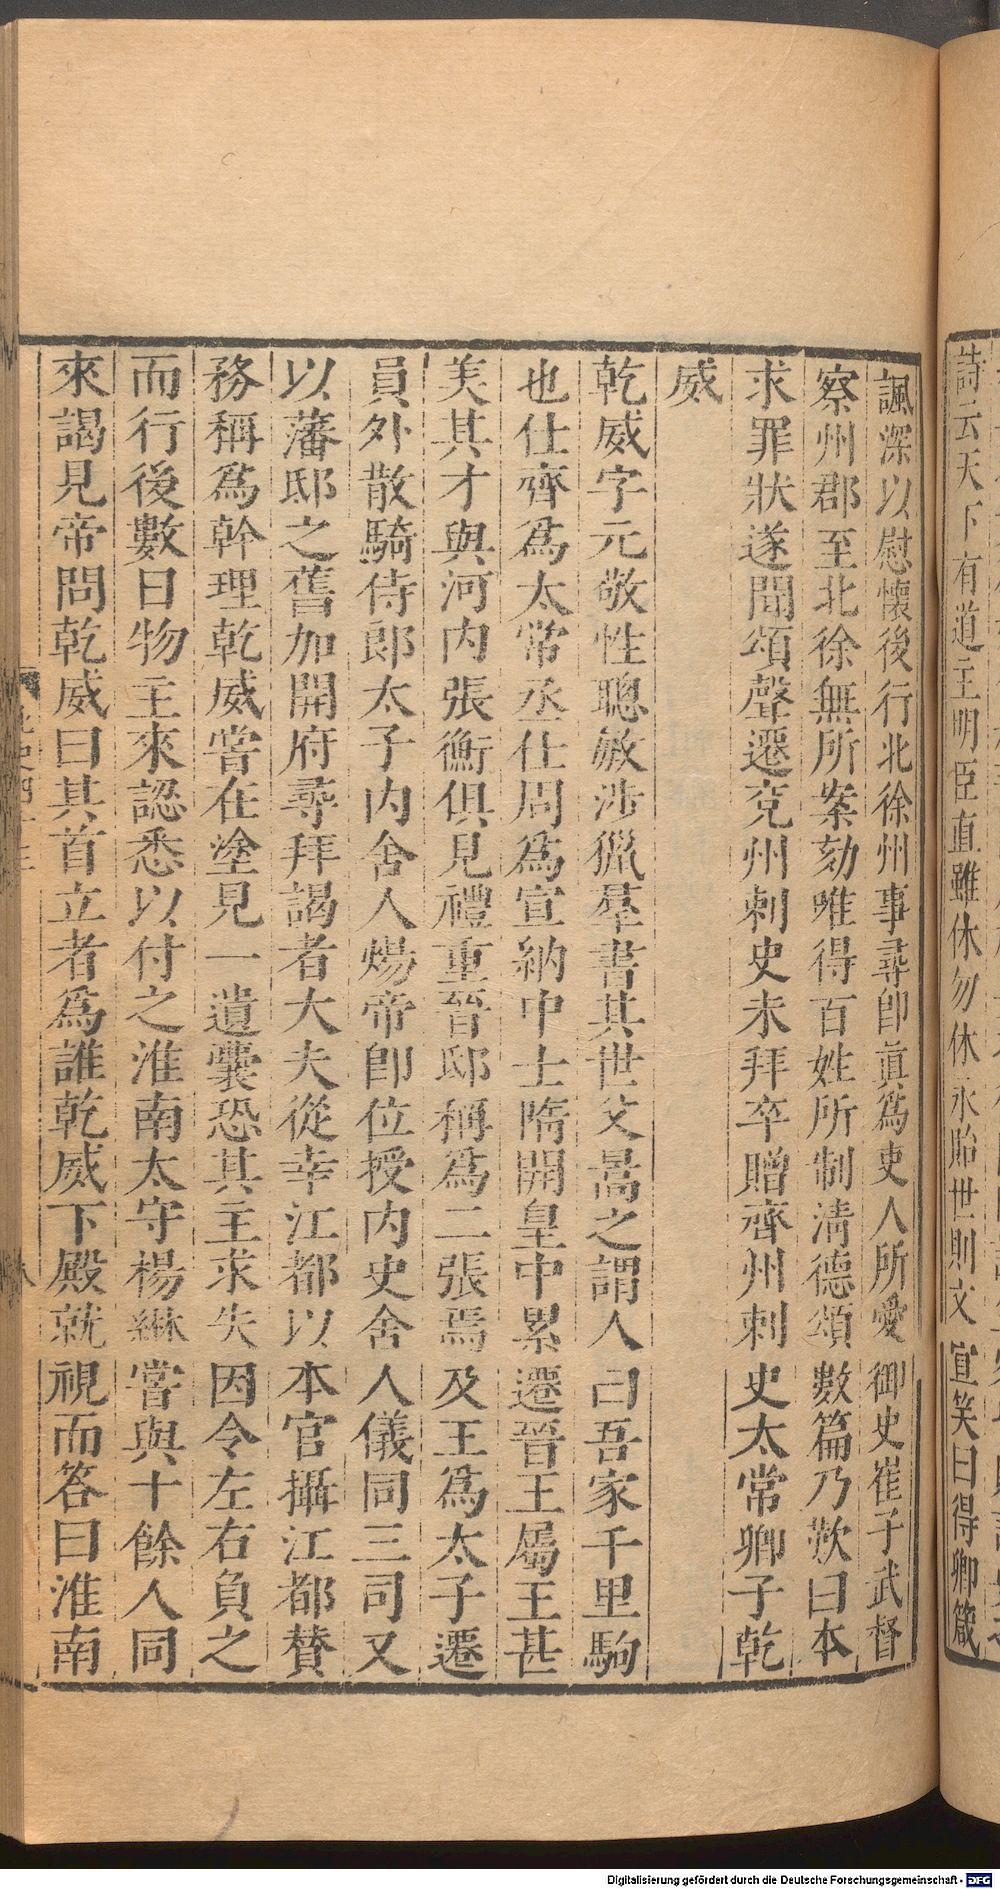 詩云天下有道主明臣直雖休勿休永貽世則文宣笑曰得卿箴
諷深以慰懷後行北徐州事尋卽眞爲吏人所愛御史崔子武督
察州郡至北徐無所案劾唯得百姓所制清德頌數篇乃歎曰本
求罪狀遂聞頌聲遷兗州刺史未拜卒贈齊州刺史太常卿子乾
威
乾威字元敬性聰敏涉獵羣書其世父暠之謂人曰吾家千里駒
也仕齊爲太常丞仕周爲宣納中士隋開皇中累遷晉王屬王甚
美其才與河內張衡俱見禮重晉邸稱爲二張焉及王爲太子遷
員外散騎侍郎太子內舍人煬帝卽位授內史舍人儀同三司又
以藩邸之舊加開府尋拜謁者大夫從幸江都以本官攝江都贊
務稱爲幹理乾威嘗在塗見一遺囊恐其主求失因令左右負之
而行後數日物主來認悉以付之淮南太守楊綝嘗與十餘人同
來謁見帝問乾威曰其首立者爲誰乾威下殿就視而答曰淮南
Digitalisierung gefördert durch die Deutsche Forschungsgemeinschaft - DFG